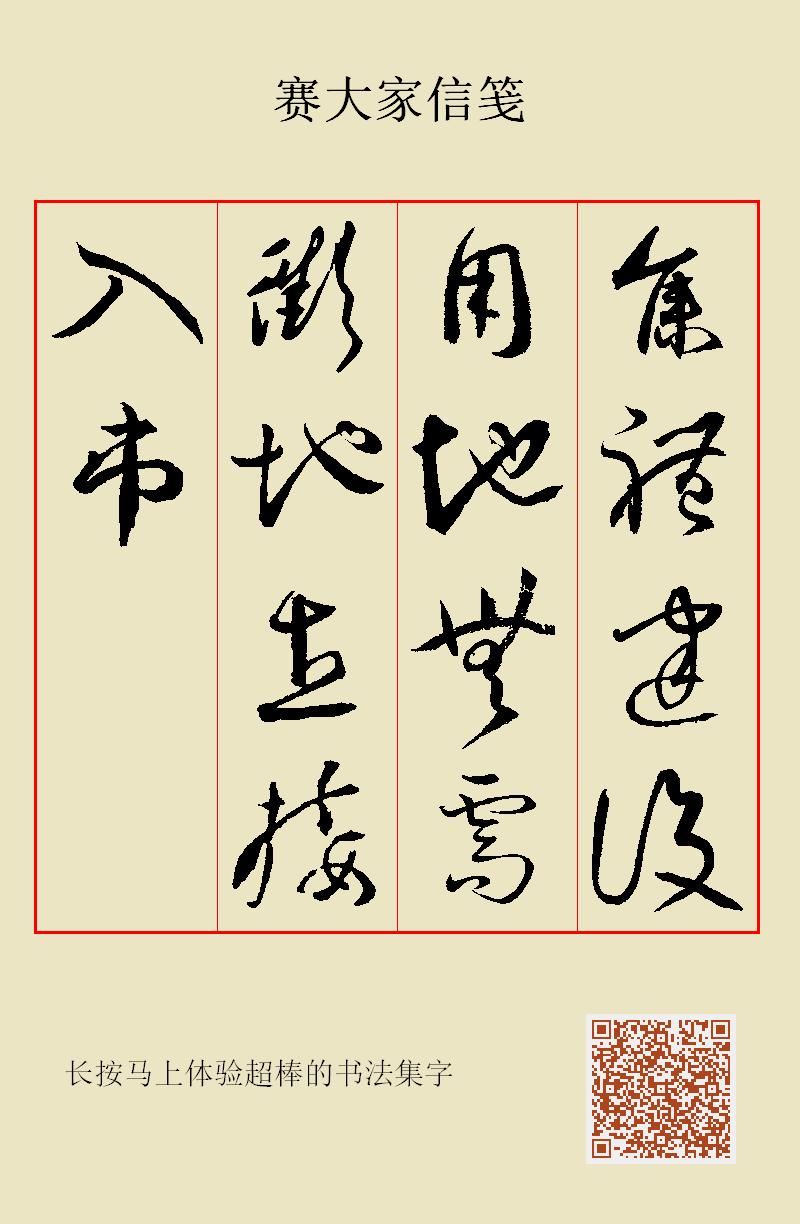 赛大家信笺
集體建設
用地無需
徵地直接
入市
长按马上体验超棒的书法集字